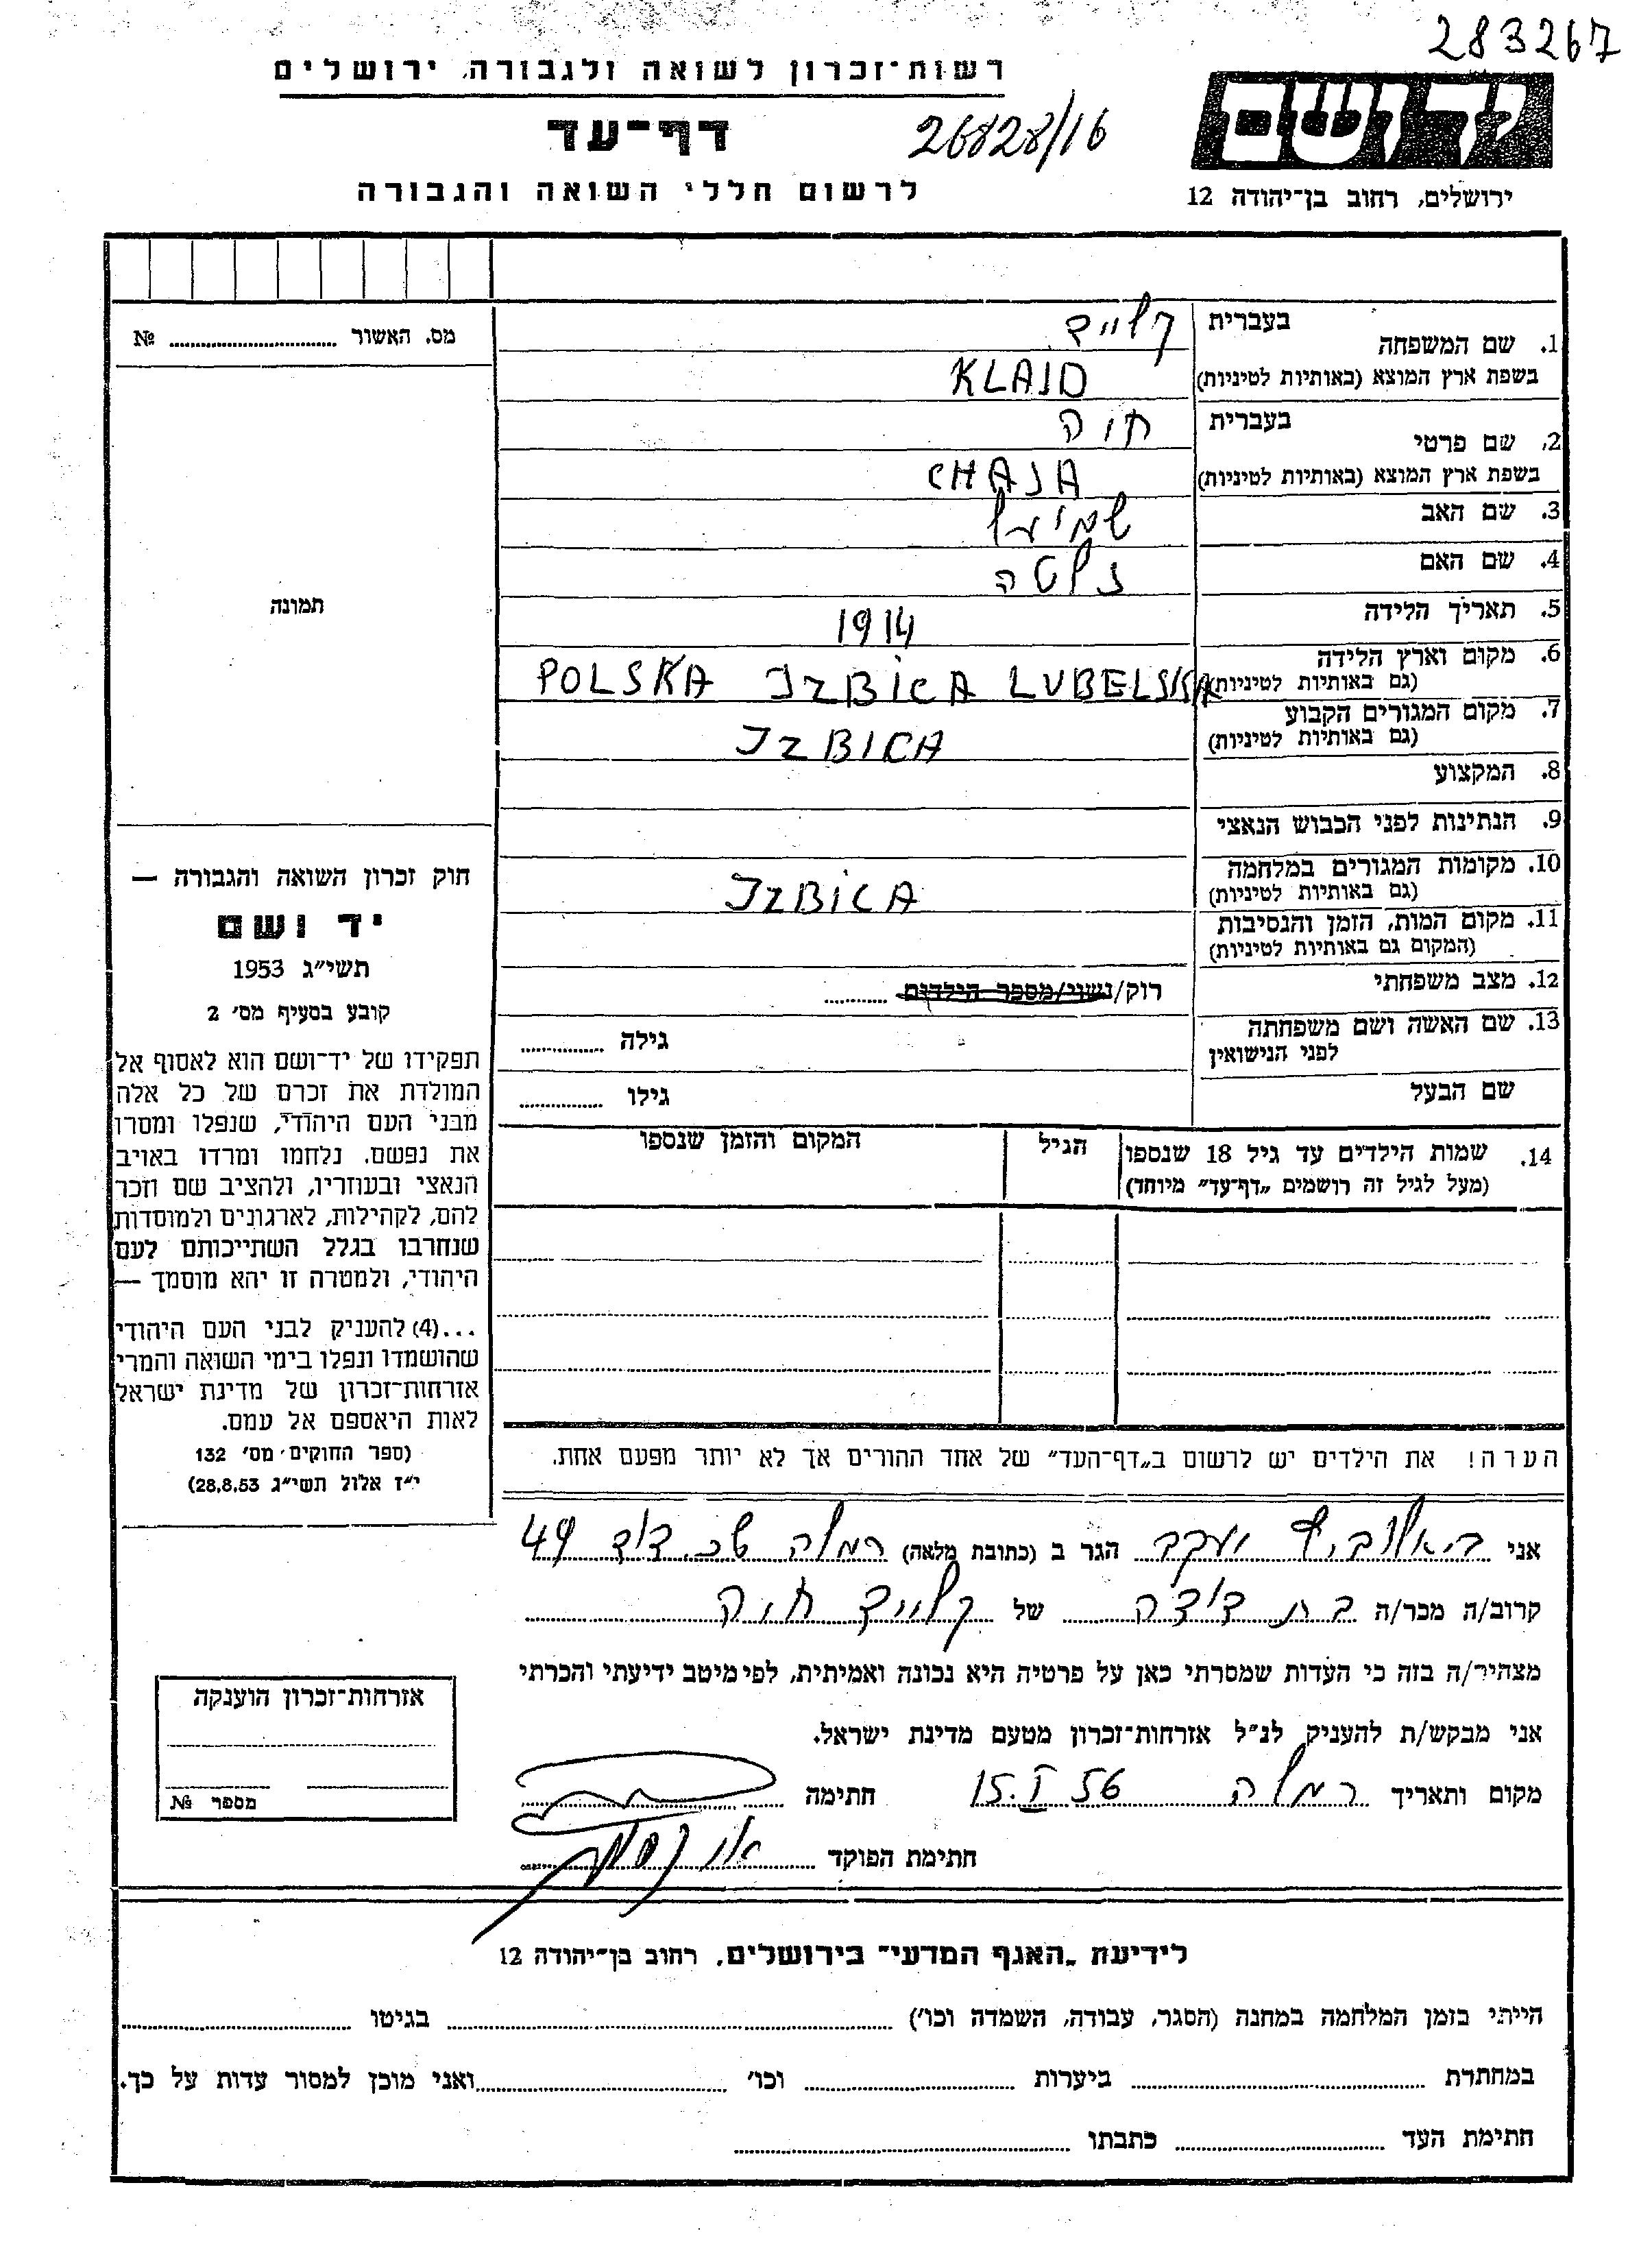 283267
רשות-זכרון לשואה ולגבורה, ירושלים
דף-עד
26828/16
לרשום חללי השואה והגבורה
ידושם
ירושלים, רחוב בן-יהודה 12
מס. האשור № 
תמונה
1. שם המשפחה
בעברית קלייד
בשפת ארץ המוצא (באותיות לטיניות) KLAJD
2. שם פרטי
בעברית חיה
בשפת ארץ המוצא (באותיות לטיניות) CHAJA
3. שם האב שמואל
4. שם האם זלטה
5. תאריך הלידה 1914
6. מקום וארץ הלידה
(גם באותיות לטיניות) POLSKA IZBICA LUBELSKA
7. מקום המגורים הקבוע
(גם באותיות לטיניות) IZBICA
8. המקצוע
9. הנתינות לפני הכבוש הנאצי
10. מקומות המגורים במלחמה
(גם באותיות לטיניות) IZBICA
11. מקום המות, הזמן והנסיבות
(המקום גם באותיות לטיניות)
12. מצב משפחתי רוק/נשוי/מספר הילדים
13. שם האשה ושם משפחתה
לפני הנישואין גילה
שם הבעל גילו
14. שמות הילדים עד גיל 18 שנספו
(מעל לגיל זה רושמים „דף-עד" מיוחד)
הגיל
המקום והזמן שנספו
חוק זכרון השואה והגבורה —
יד ושם
תשי"ג 1953
קובע בסעיף מס' 2
תפקידו של יד-ושם הוא לאסוף אל
המולדת את זכרם של כל אלה
מבני העם היהודי, שנפלו ומסרו
את נפשם, נלחמו ומרדו באויב
הנאצי ובעוזריו, ולהציב שם וזכר
להם, לקהילות, לארגונים ולמוסדות
שנחרבו בגלל השתייכותם לעם
היהודי, ולמטרה זו יהא מוסמך —
...(4) להעניק לבני העם היהודי
שהושמדו ונפלו בימי השואה והמרי
אזרחות-זכרון של מדינת ישראל
לאות היאספם אל עמם.
(ספר החוקים מס' 132
י"ז אלול תשי"ג 28.8.53)
הערה! את הילדים יש לרשום ב„דף-העד" של אחד ההורים אך לא יותר מפעם אחת.
אני יעקב הגר ב (כתובת מלאה) רמלה שכ. דוד 49
קרוב/ה מכר/ה בת דודה של קלייד חיה
מצהיר/ה בזה כי העדות שמסרתי כאן על פרטיה היא נכונה ואמיתית, לפי מיטב ידיעתי והכרתי
אני מבקש/ת להעניק לנ"ל אזרחות-זכרון מטעם מדינת ישראל.
מקום ותאריך רמלה 15.I 56 חתימה
חתימת הפוקד
אזרחות-זכרון הוענקה
מספר №
לידיעת „האגף המדעי" בירושלים, רחוב בן-יהודה 12
הייתי בזמן המלחמה במחנה (הסגר, עבודה, השמדה וכו') בגיטו
במחתרת ביערות וכו' ואני מוכן למסור עדות על כך.
חתימת העד כתבתו